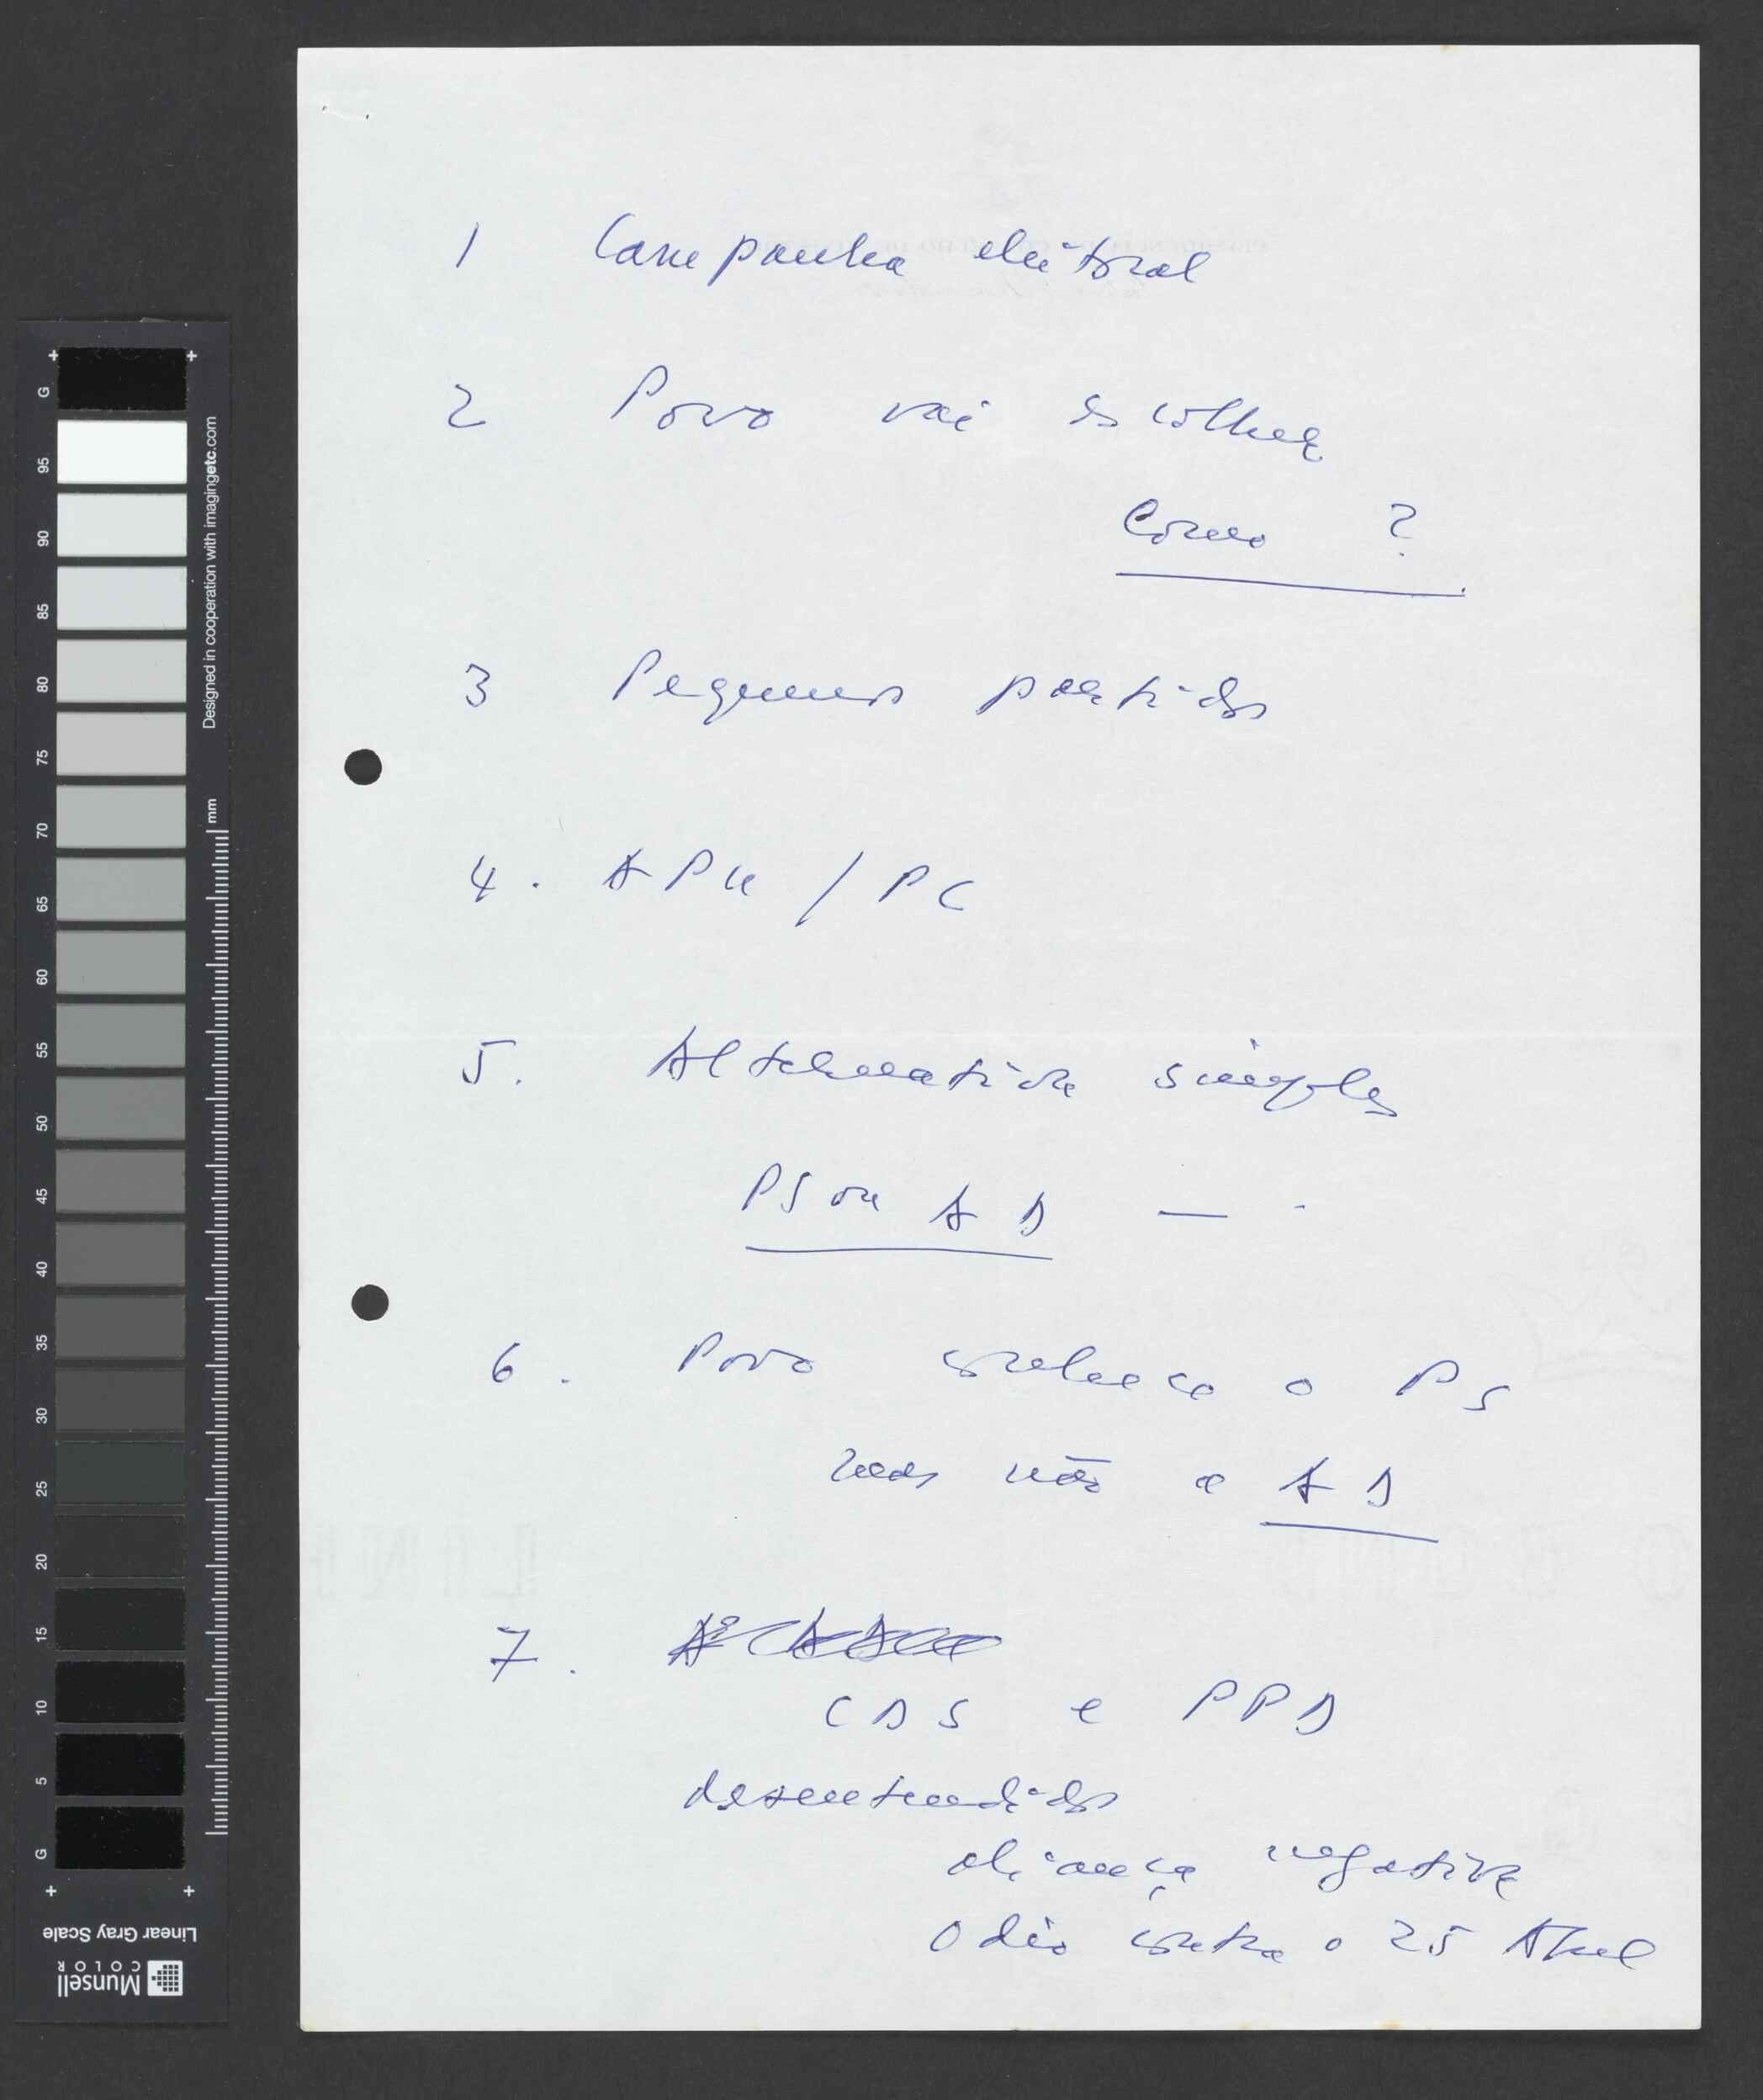 1 Campanha eleitoral
2 Povo vai escolher
Como ?
3 Pequenos partidos
4. APU / PC
5. Alternativa simples
PS ou AD — -
6. Povo conhece o PS
mas não a AD
7.
CDS e PPD
desentendidos
aliança negativa
Odio contra o 25 Abril
G
95
90
85
80
75
70
65
60
55
50
45
40
35
30
25
20
15
10
5
G
Designed in cooperation with imagingetc.com
mm
Linear Gray Scale
Munsell
COLOR